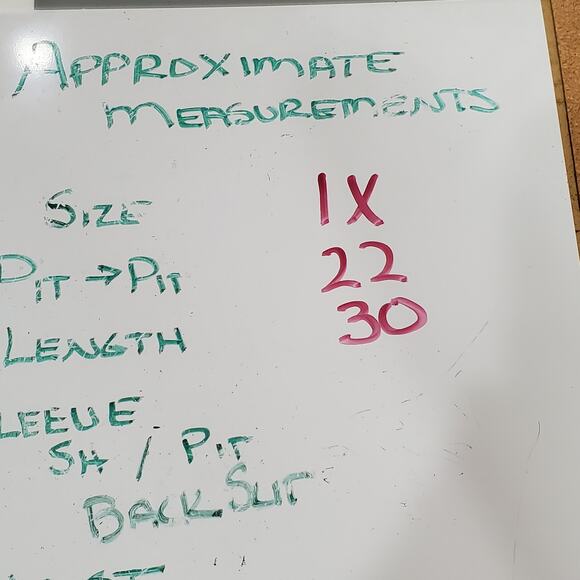 APPROXIMATE
MEASUREMENTS
SIZE 1X
PIT → PIT 22
LENGTH 30
LEEVE
SH / PIT
BACK SLIT